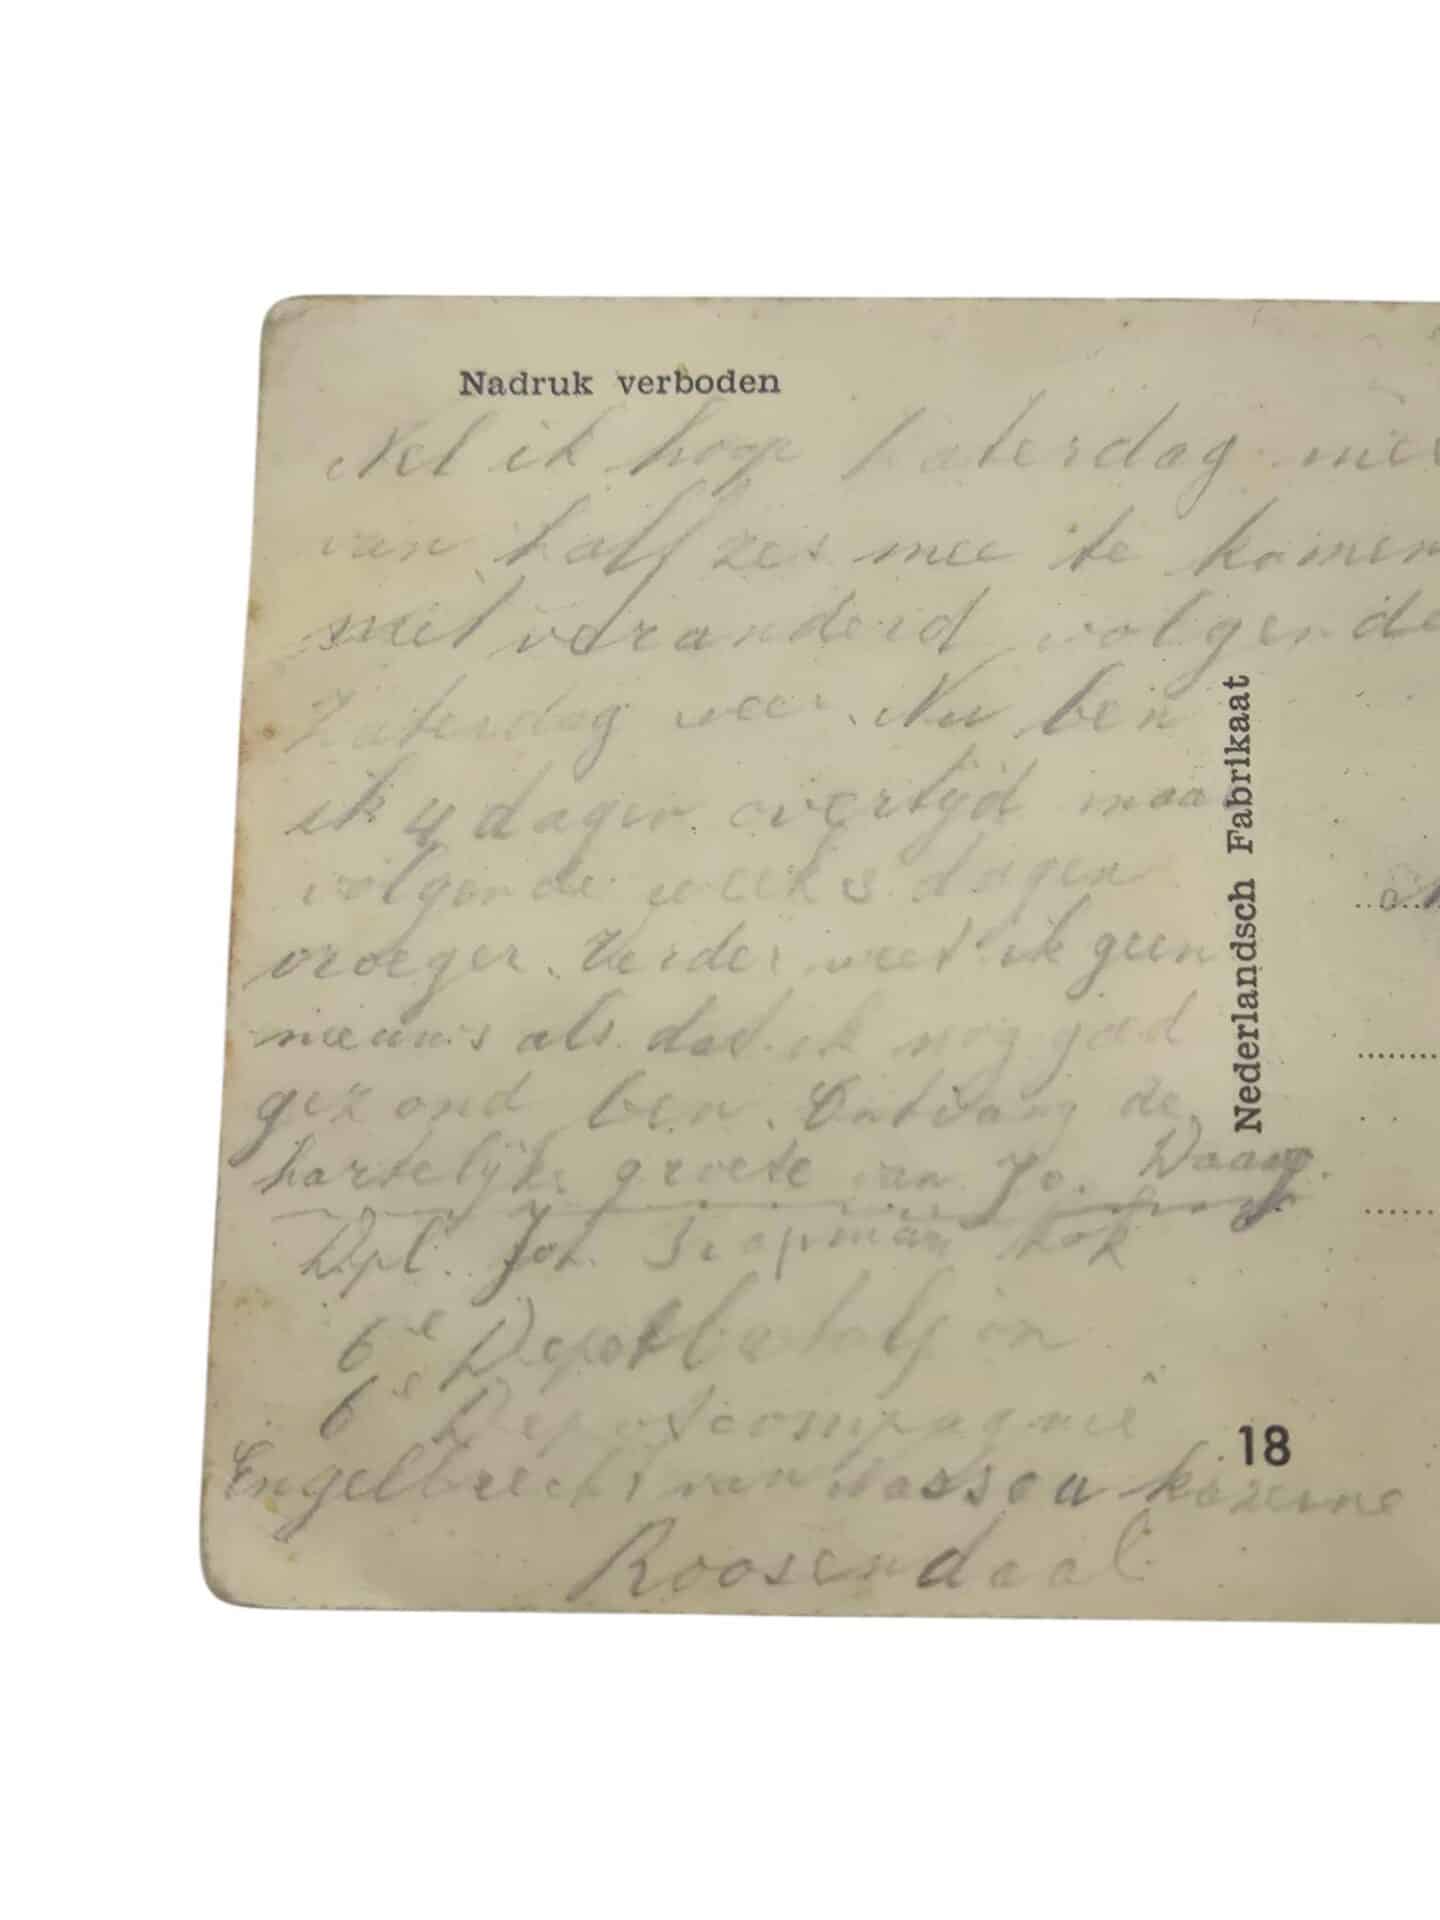 Nadruk verboden
Nel ik hoop Zaterdag
van half zes mee te komen
niet veranderd volgende
Zaterdag weer. Nu ben
ik 4 dagen overtijd maar
volgende week dagen
vroeger. Verder weet ik geen
nieuws als dat ik nog goed
gezond ben. Ontvang de
hartelijke groete van Jo. Daag.
Dpl. Joh.
6e Depotbataljon
6e Depotcompagnie
Engelbrecht van Nassou kazerne
Roosendaal
Nederlandsch Fabrikaat
18